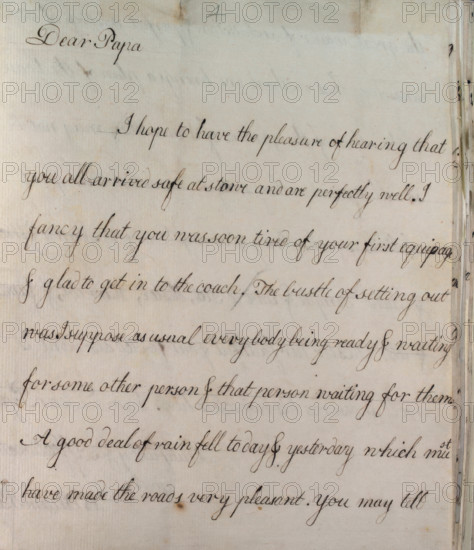 Dear Papa
I hope to have the pleasure of hearing that
you all arrived safe at stowe and are perfectly well. I
fancy that you was soon tired of your first equipage
& glad to get in to the coach. The bustle of setting out
was I suppose as usual every body being ready & waiting
for some other person & that person waiting for them
A good deal of rain fell to day & yesterday which must
have made the roads very pleasent. you may tell
PHOTO 12